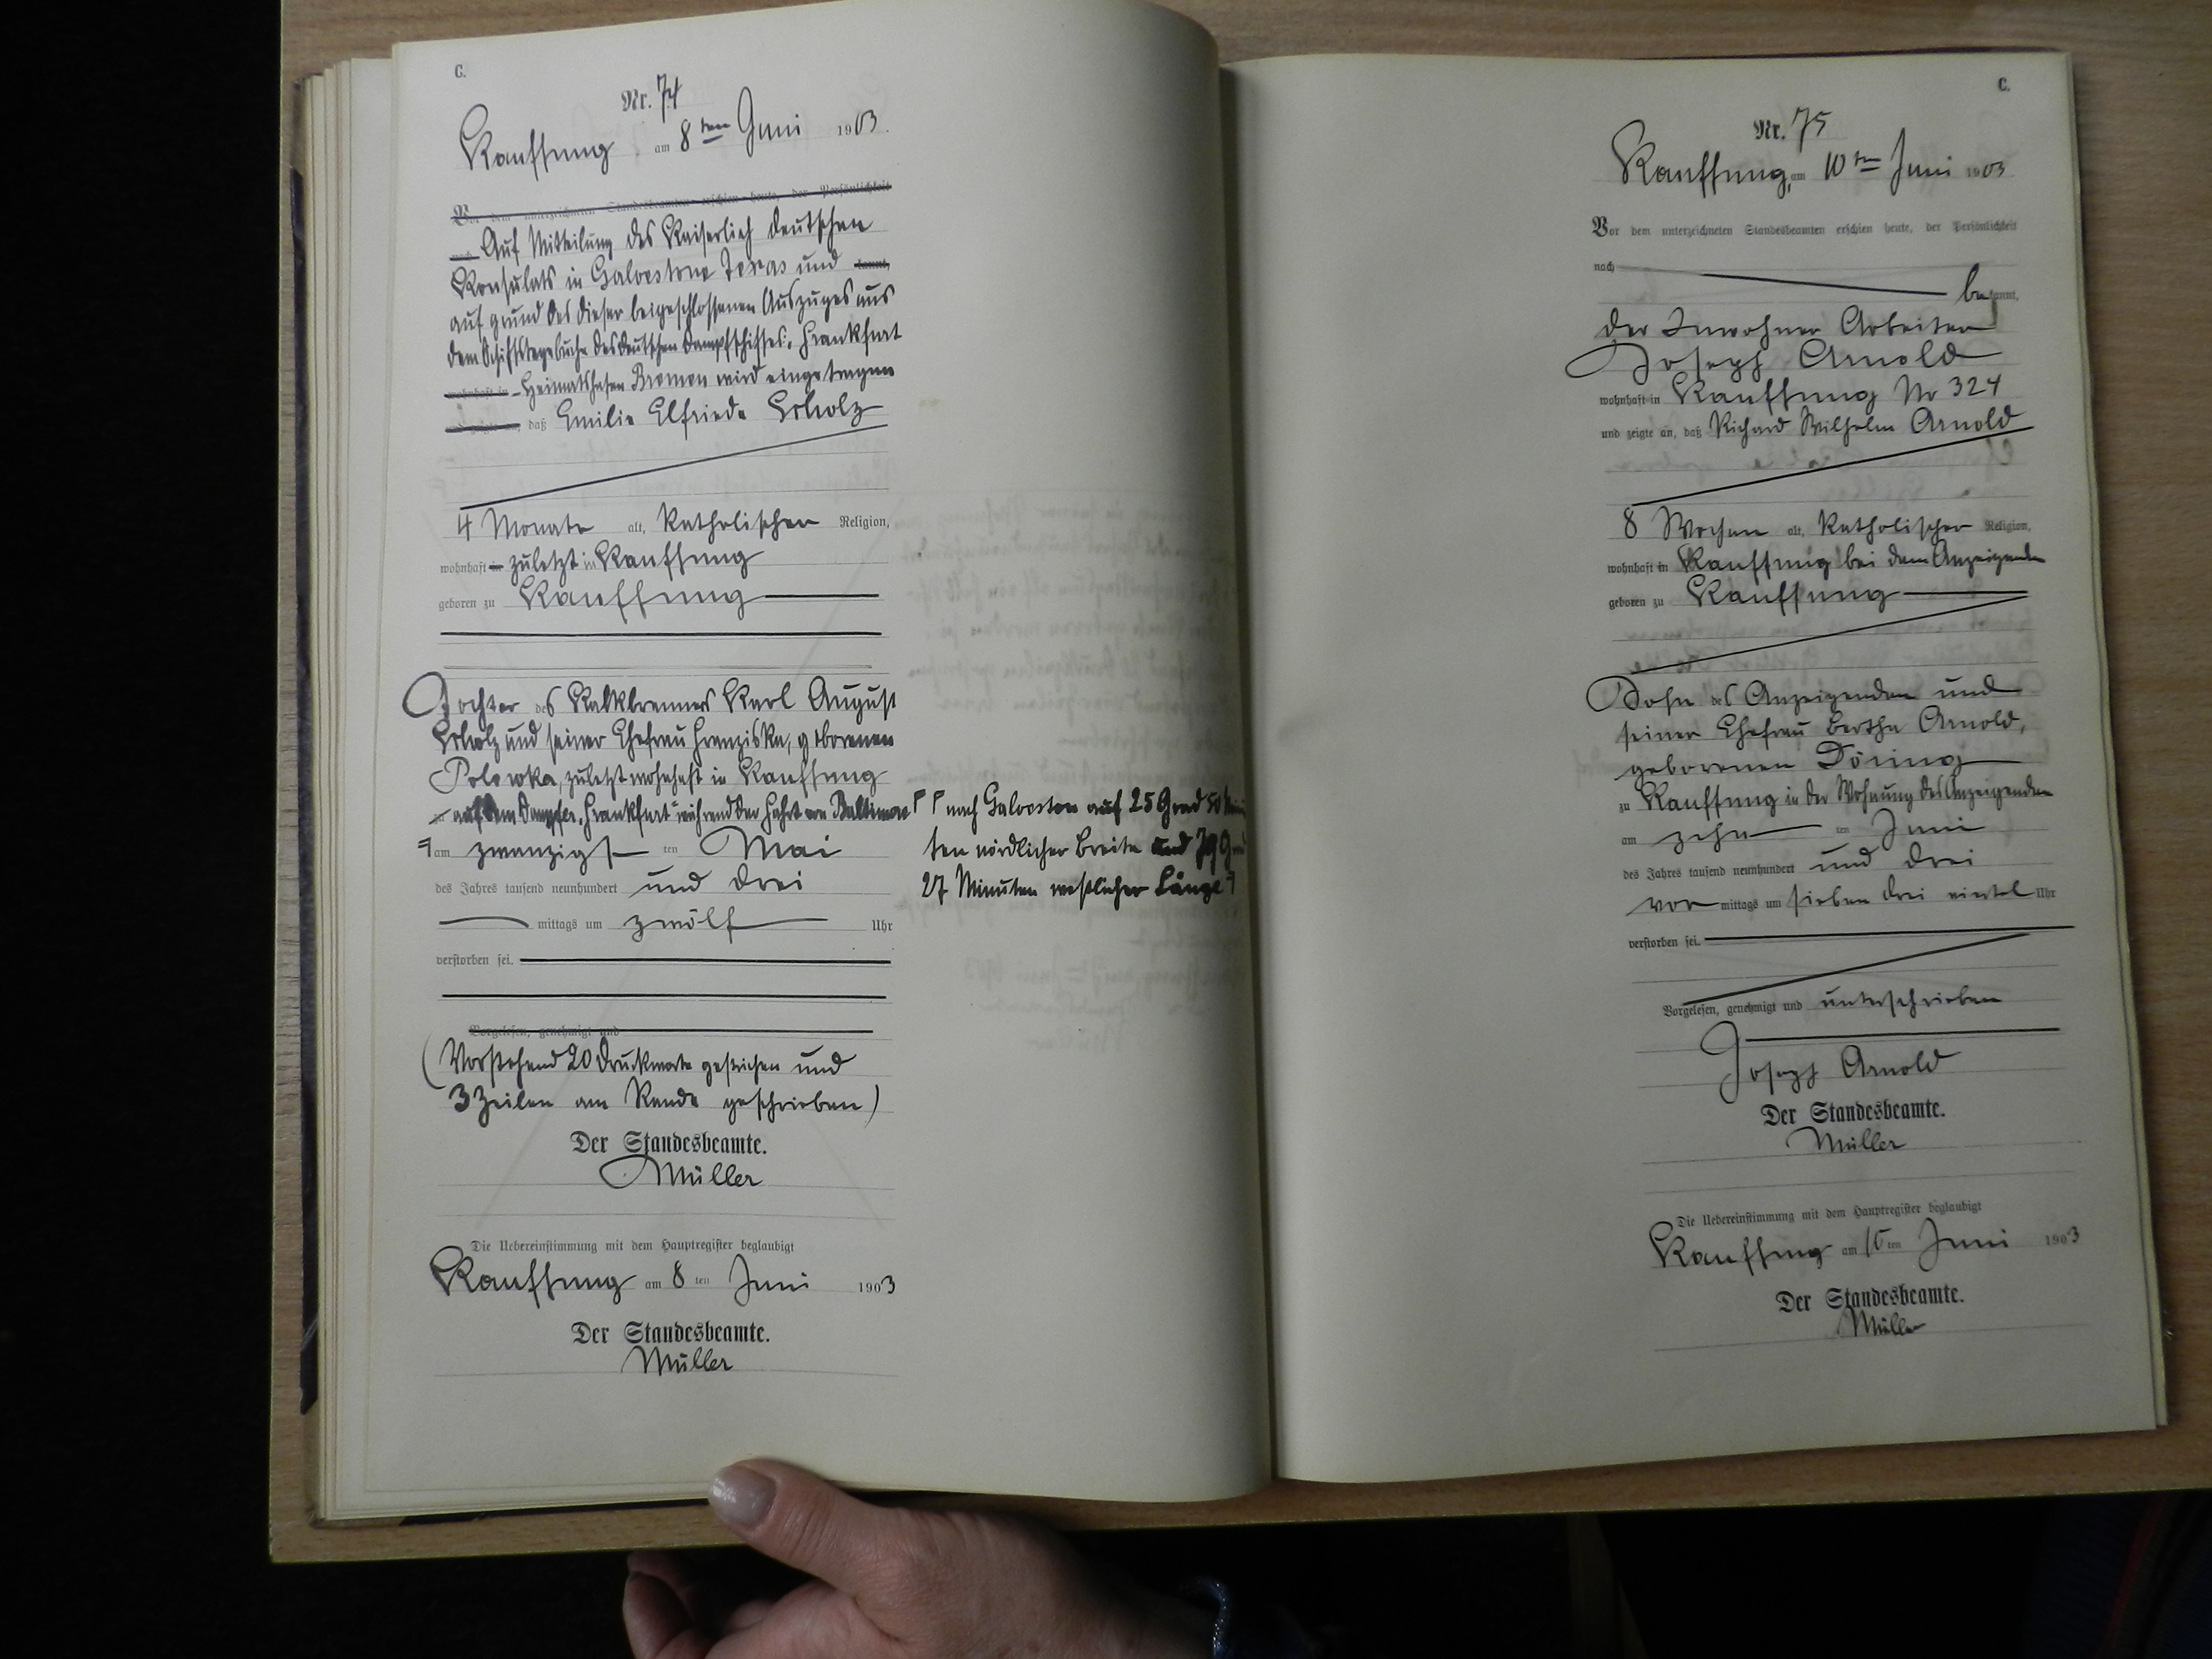 C.
Nr. 74
Kauffung am 8ten Juni 1903.
Vor dem unterzeichneten Standesbeamten erschien heute, der Persönlichkeit
Auf Mitteilung des Kaiserlich deutschen
Konsulats in Galvestone Texas und kannt,
auf grund des dieser beigeschlossenen Auszuges aus
dem Schiffstagebuche des deutschen Dampfschiffes: Frankfurt
wohnhaft in Heimatshafen Bremen wird eingetragen
daß Emilie Elfriede Scholz
4 Monate alt, katholischer Religion,
wohnhaft in zuletzt in Kauffung
geboren zu Kauffung
Tochter des Kalkbrenners Karl August
Scholz und seiner Ehefrau Franziska, geborenen
Polowka, zuletzt wohnhaft in Kauffung
zu auf dem Dampfer „Frankfurt" während der Fahrt von Baltimore
am zwanzigsten Mai
des Jahres tausend neunhundert und drei
mittags um zwölf Uhr
verstorben sei.
Vorgelesen, genehmigt und
(Vorstehend 20 Druckworte gestrichen und
3 Zeilen am Rande geschrieben)
Der Standesbeamte.
Müller
Die Uebereinstimmung mit dem Hauptregister beglaubigt
Kauffung am 8ten Juni 1903
Der Standesbeamte.
Müller
nach Galveston auf 25 Grad 50 Minu
ten nördlicher Breite und 79 Grad
27 Minuten westlicher Länge
C.
Nr. 75
Kauffung, am 10ten Juni 1903
Vor dem unterzeichneten Standesbeamten erschien heute, der Persönlichkeit
nach
bekannt,
der Inwohner Arbeiter
Joseph Arnold
wohnhaft in Kauffung No 324
und zeigte an, daß Richard Wilhelm Arnold
8 Wochen alt, katholischer Religion,
wohnhaft in Kauffung bei dem Anzeigenden
geboren zu Kauffung
Sohn des Anzeigenden und
seiner Ehefrau Bertha Arnold,
geborenen Döring
zu Kauffung in der Wohnung des Anzeigenden
am zehnten Juni
des Jahres tausend neunhundert und drei
vor mittags um sieben drei viertel Uhr
verstorben sei.
Vorgelesen, genehmigt und unterschrieben
Joseph Arnold
Der Standesbeamte.
Müller
Die Uebereinstimmung mit dem Hauptregister beglaubigt
Kauffung am 10ten Juni 1903
Der Standesbeamte.
Müller